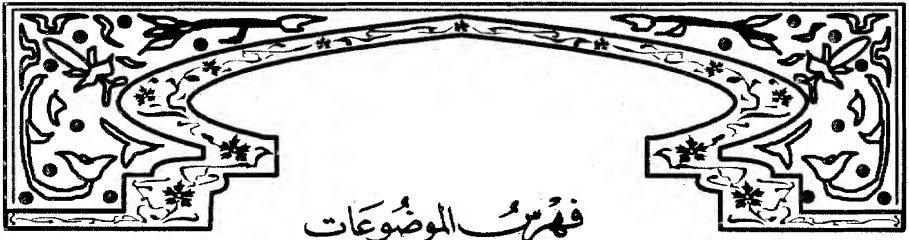 فهْرسُ الموضُوعَات